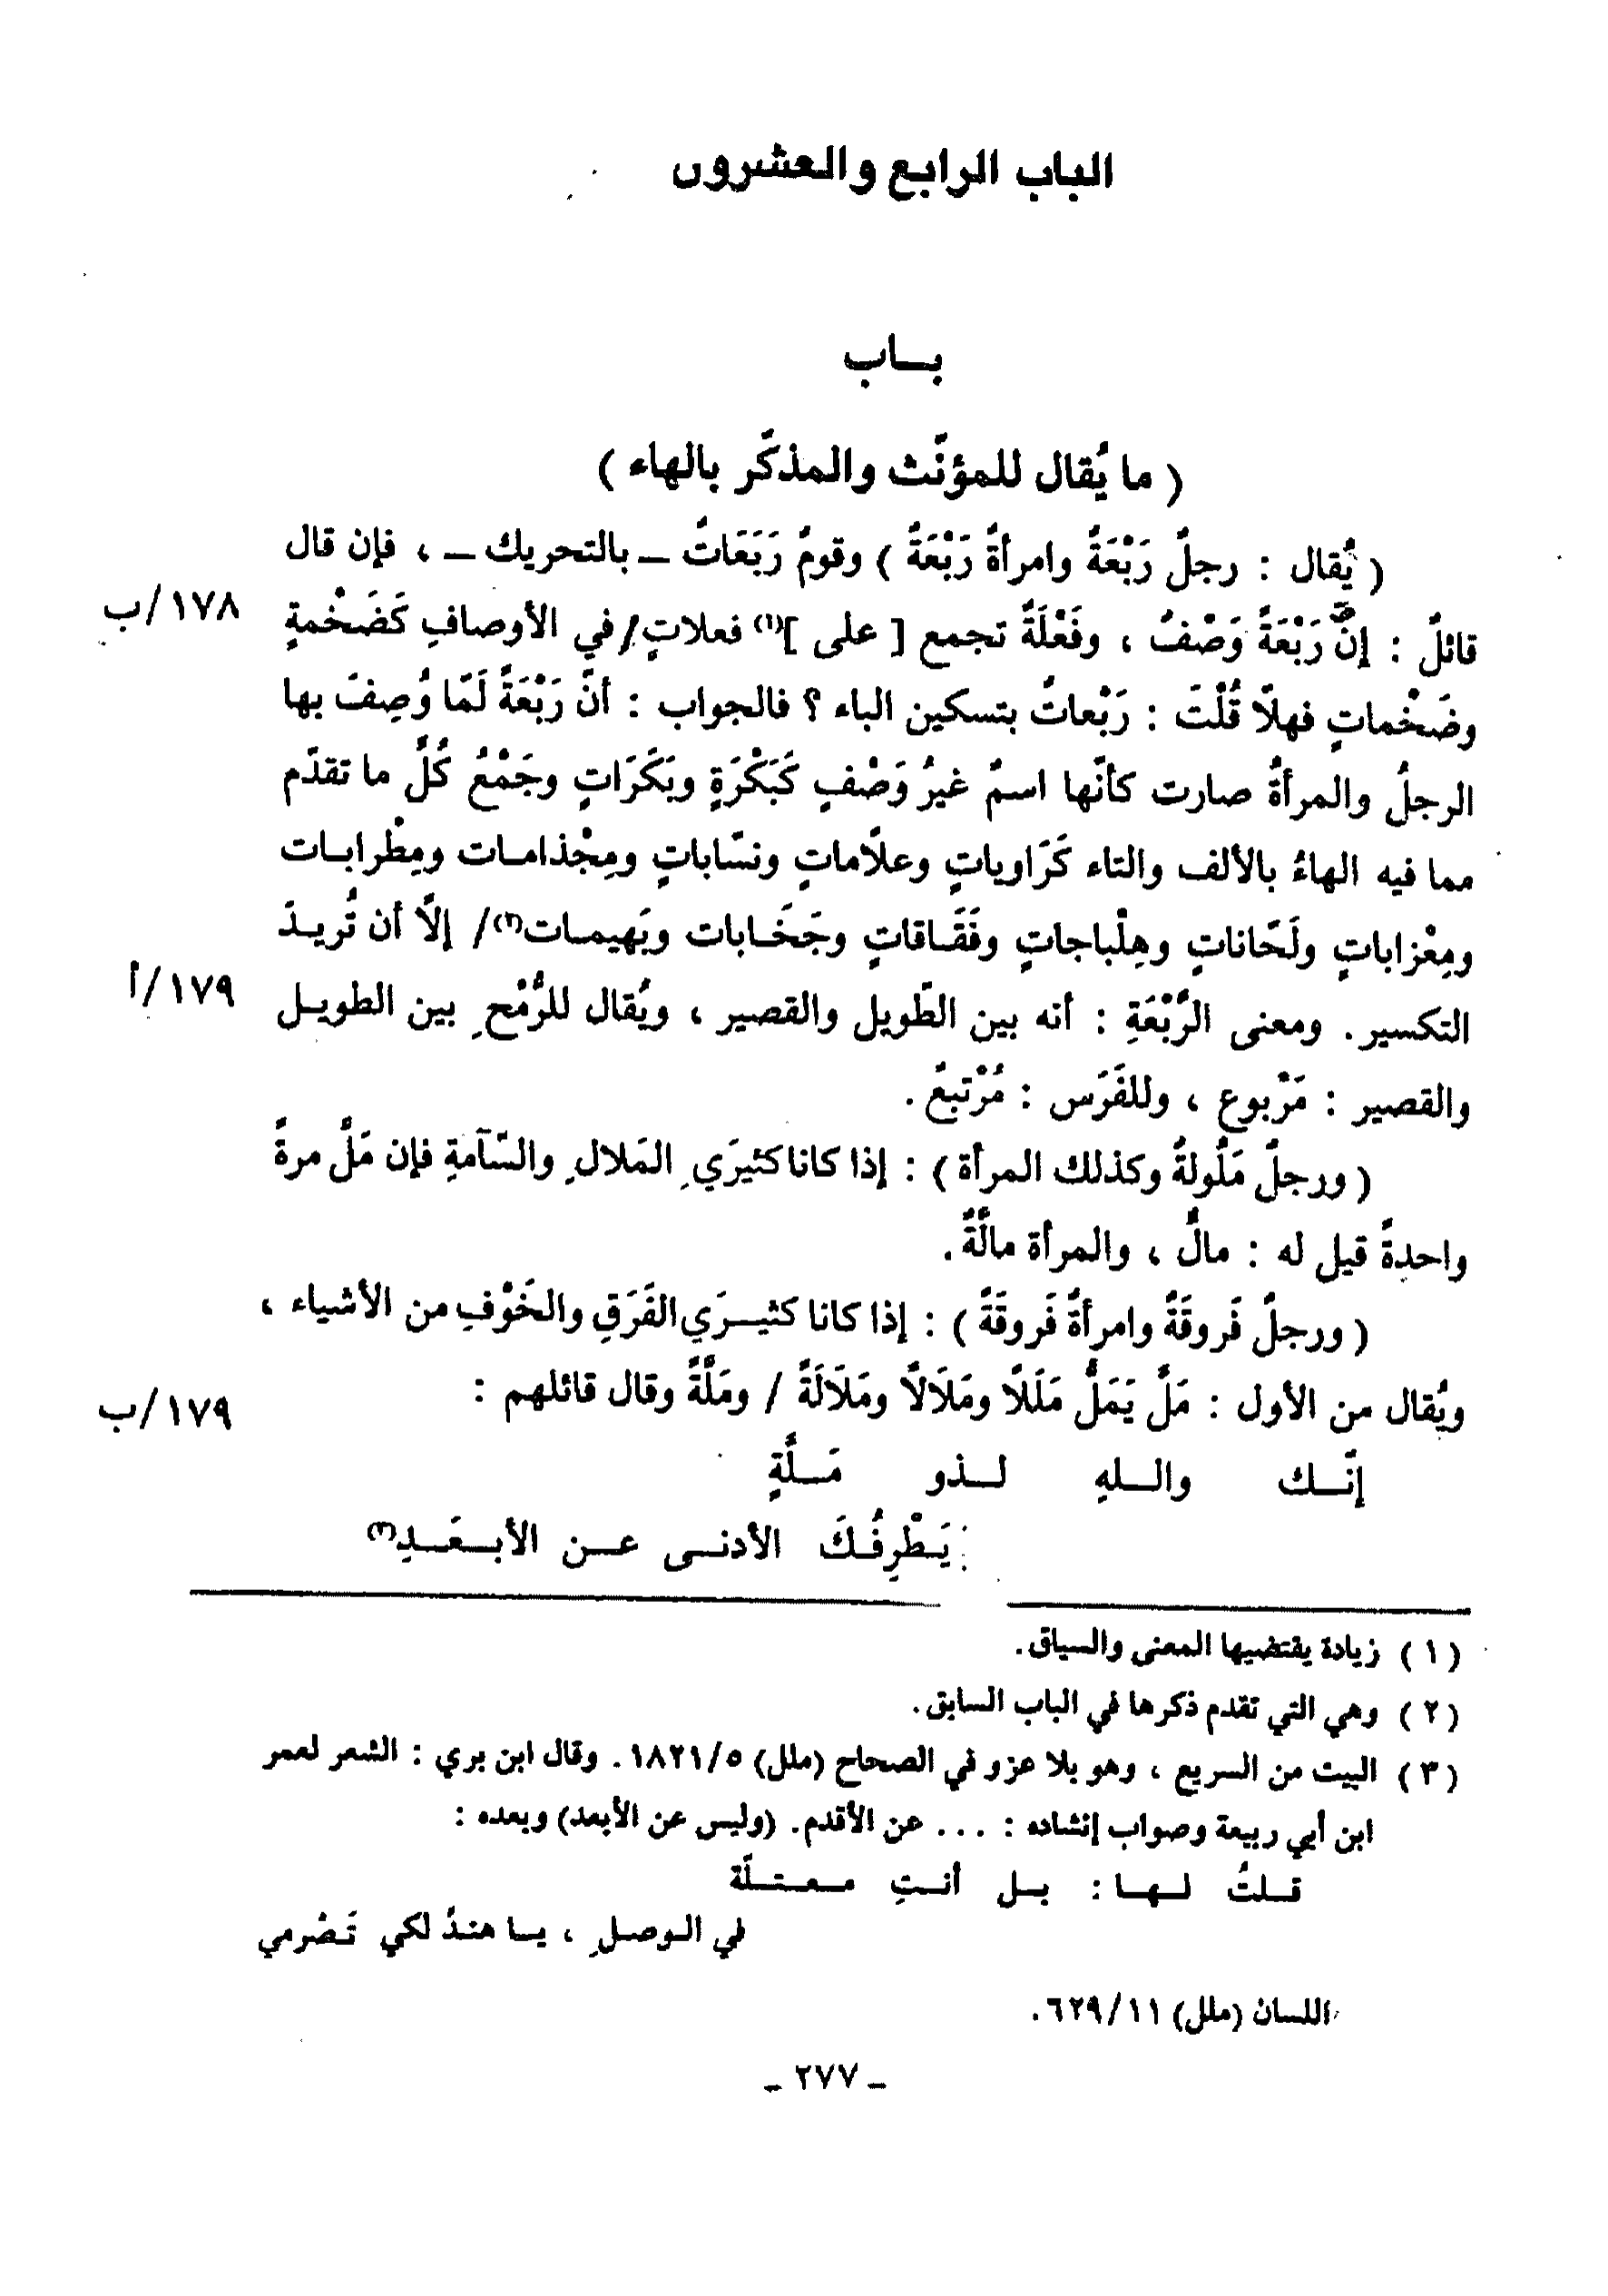 الباب الرابع والعشرون
بـاب
( ما يُقال للمؤنّث والمذكّر بالهاء )
( يُقال : رجلٌ رَبْعَةٌ وامرأةٌ رَبْعَةٌ ) وقومٌ رَبَعَاتٌ ـ بالتحريك ـ ، فإن قال
قائلٌ : إنَّ رَبْعَةً وَصْفٌ ، وفَعْلَةٌ تجمع [ على ](١) فعلاتٍ/في الأوصافِ كَضَخْمةٍ ١٧٨/ب
وضَخْماتٍ فهلّا قُلْتَ : رَبْعاتٌ بتسكين الباء ؟ فالجواب : أنَّ رَبْعَةً لَمّا وُصِفَ بها
الرجلُ والمرأةُ صارت كأنّها اسمٌ غيرُ وَصْفٍ كَبَكْرَةٍ وبَكَرَاتٍ وجَمْعُ كُلِّ ما تقدّم
مما فيه الهاءُ بالألف والتاء كَرَاوياتٍ وعلاّماتٍ ونسّاباتٍ ومِجْذامـات ومِطْرابـات
ومِعْزاباتٍ ولَحّاناتٍ وهِلْباجاتٍ وفَقَـاقاتٍ وجَخَـابات وبَهيمـات(٢)/ إلّا أن تُريـدَ
التكسير. ومعنى الرَّبْعَةِ : أنه بين الطّويل والقصير ، ويُقال للرُّمْحِ بين الطويـل ١٧٩/أ
والقصير : مَرْبوع ، وللفَرَس : مُرْتبعٌ .
( ورجلٌ مَلُولةٌ وكذلك المرأة ) : إذا كانا كثيرَي المَلالِ والسّآمةِ فإن مَلَّ مرةً
واحدةً قيل له : مالٌّ ، والمرأة مالّةٌ.
( ورجلٌ فَروقَةٌ وامرأةٌ فَروقَةٌ ) : إذا كانا كثيـرَي الفَرَقِ والخَوْفِ من الأشياء ،
ويُقال من الأول : مَلَّ يَمَلُّ مَلَلًا ومَلَالًا ومَلَالَةً / ومَلَّةً وقال قائلهم : ١٧٩/ب
إنّـك والـلهِ لـذو مَـلَّةٍ
يَـطْرِفُـكَ الأدنـى عـن الأبـعَـدِ(٣)
( ١ ) زيادة يقتضيها المعنى والسياق.
( ٢ ) وهي التي تقدم ذكرها في الباب السابق.
( ٣ ) البيت من السريع ، وهو بلا عزو في الصحاح (ملل) ١٨٢١/٥. وقال ابن بري : الشعر لعمر
ابن أبي ربيعة وصواب إنشاده : ... عن الأقدم. (وليس عن الأبعد) وبعده :
قـلتُ لـهـا: بـل أنـتِ مـعـتـلّة
في الـوصلِ ، يـا هنـدُ لكي تَـصْرمي
اللسان (ملل) ٦٢٩/١١ .
ـ ٢٧٧ ـ